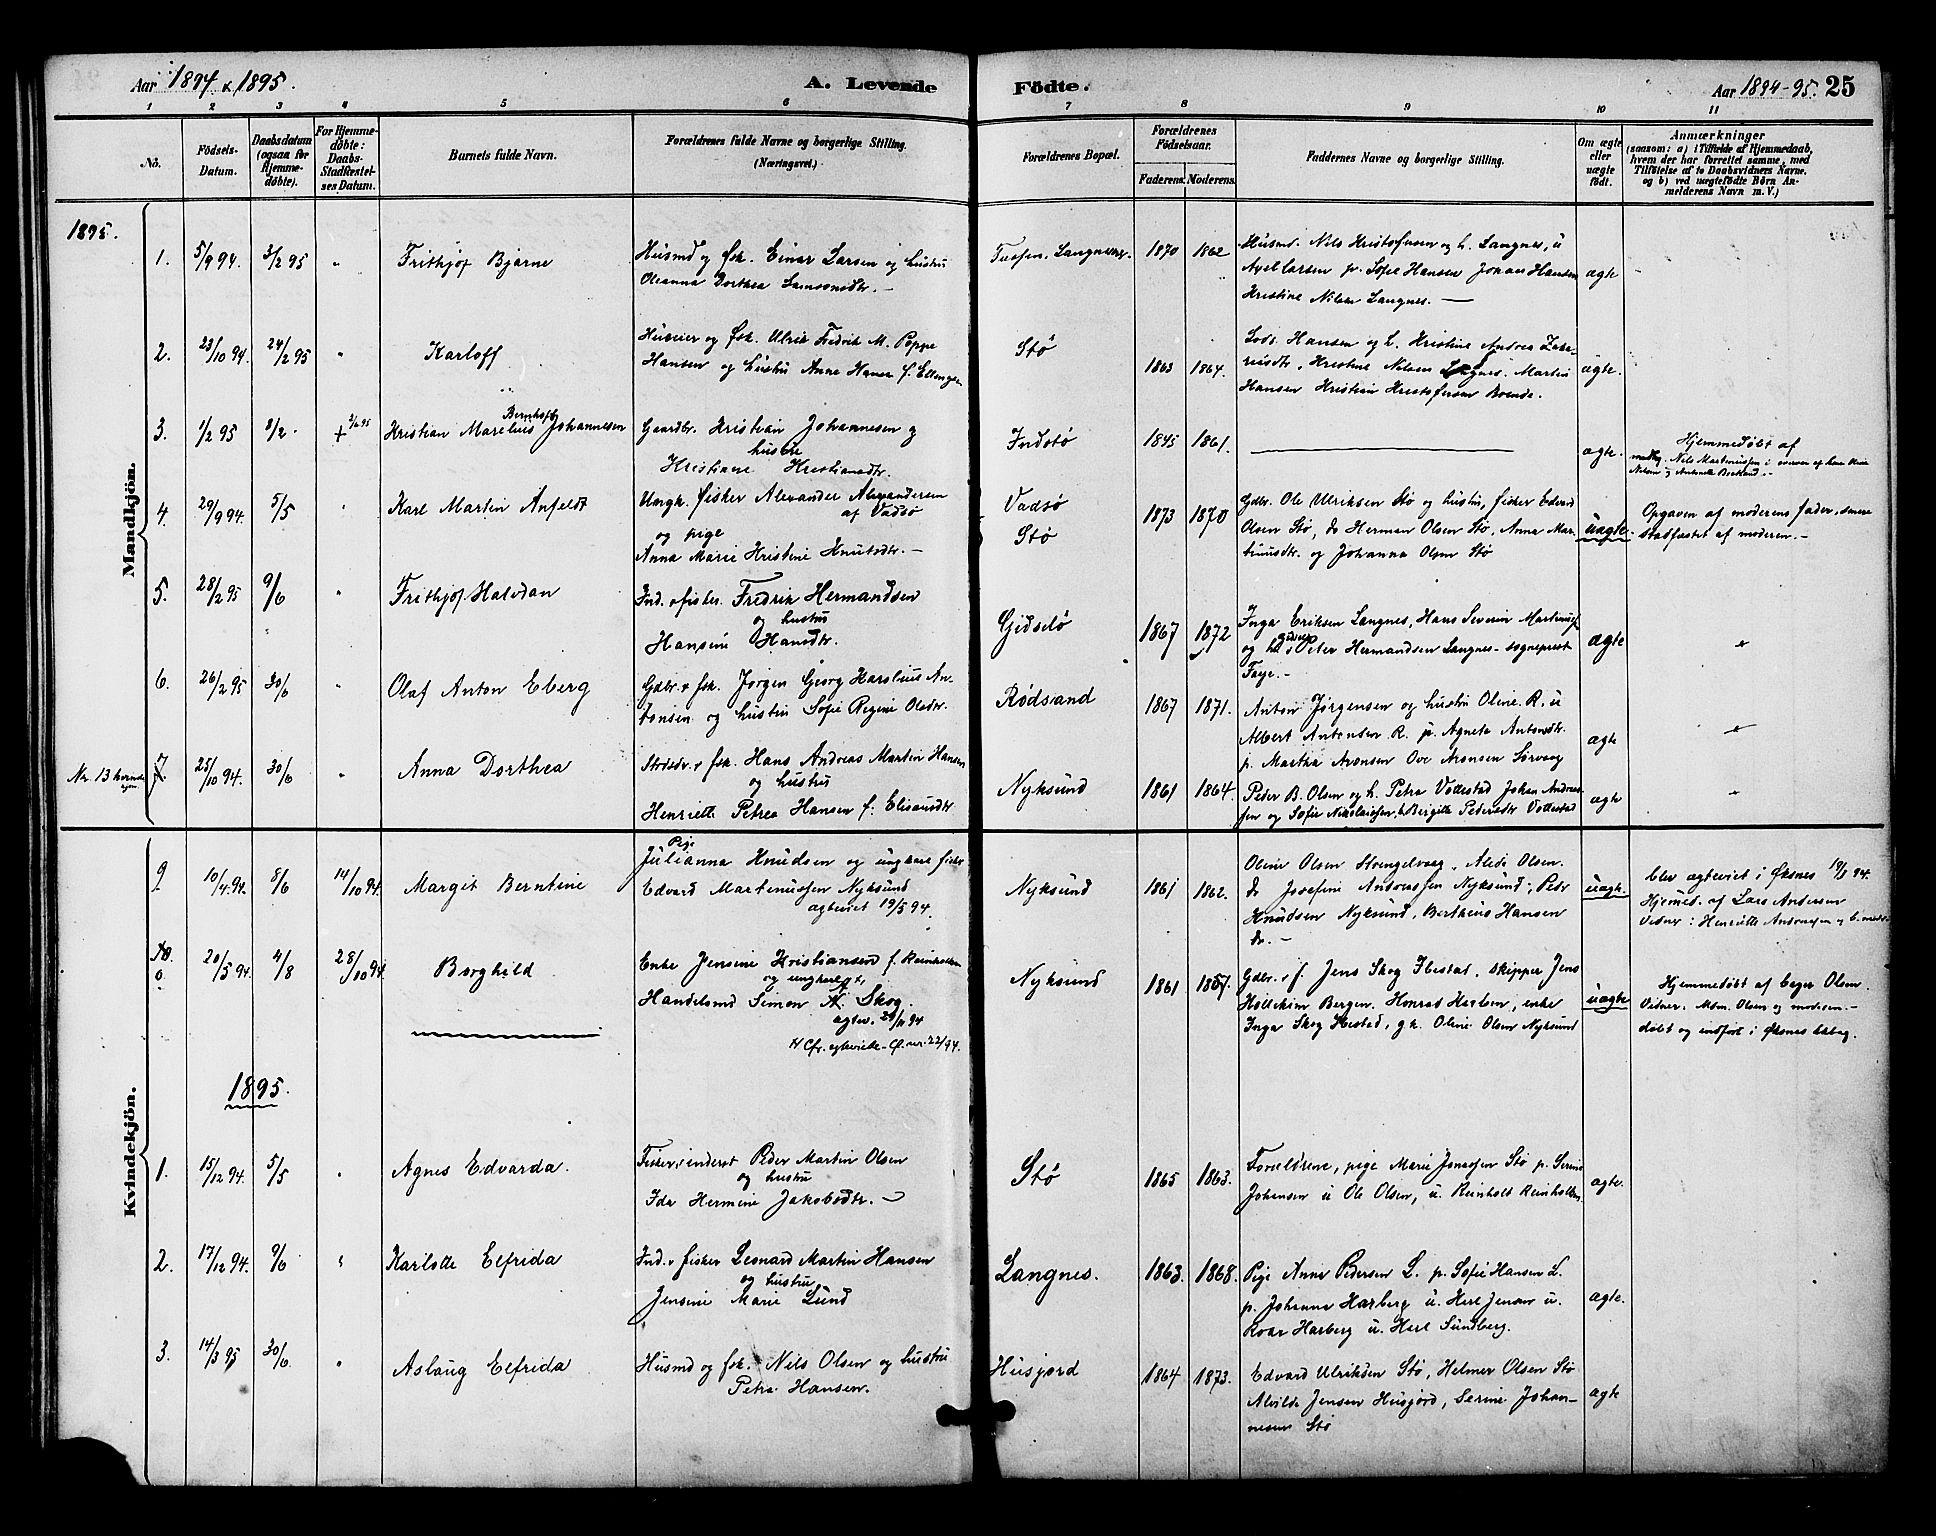 Aar 1894 & 1895.
A. Levende Födte.
Aar 1894-95. 25
1 2 3 4 5 6 7 8 9 10 11
No.
Födsels-Datum.
Daabsdatum (ogsaa for Hjemmedöbte).
For Hjemmedøbte: Daabs-Stadfæstelses Datum.
Barnets fulde Navn.
Forældrenes fulde Navne og borgerlige Stilling.
(Næringsvei.)
Forældrenes Bopæl.
Forældrenes Födselsaar.
Faderens. Moderens.
Faddernes Navne og borgerlige Stilling.
Om ægte eller uægte födt.
Anmærkninger
(saasom: a) i Tilfælde af Hjemmedaab, hvem der har forrettet samme, med Tilföielse af to Daabsvidners Navne. og b) ved uægtefödte Börn Anmelderens Navn m. V.)
Mandkjön.
1895.
1. 5/9 94. 3/2 95 " Frithjof Bjarne
Husmd og fsk. Einar Larsen og hustru
Oleanna Dorthea Samsonsdtr. –
1870 1862
Husmd. Nils Kristofersen og h. Langnes, u
Axel Larsen p. Sofie Hansen Johan Hansen
Kristine Nilsen Langnes. —
ægte
2. 23/10 94. 24/2 95 " Karloff
Huseier og fsk. Ulrik Fredrik M. Peppe
Hansen og hustru Anne Hansen f. Ellingsen
Stø 1863 1864.
Lods. Hansen og h. Kristine Andrea Zakariasdtr, Kristine Nilsen Langnes. Martin
Hansen Kristian Kristofersen Boende.
ægte.
3. 1/2 95 8/2. + 3/6 95 Kristian Marelius Bernhoft Johannesen
Gaardbr. Kristian Johannesen og
hustru
Kristiane Kristiansdtr.
Indstø 1845 1861.
ægte.
Hjemmedøbt af
4. 29/9 94. 5/5 " Karl Martin Anfeldt
Ungk. fisker Alexander Alexandersen
af Vadsø
og pige
Anna Marie Kristine Knutsdtr. –
Vadsø
Stø
1873 1870
Gdbr. Ole Ulriksen Stø og hustru, fisker Edvard
Olsen Stø, do Herman Olsen Stø, Anna Martinusdtr. og Johanna Olsen Stø
uægte.
Opgaven af moderens fader, senere
stadfæstet af moderen. –
5. 28/2 95 9/6 " Frithjof Halvdan
Ind. & fisker Fredrik Hermandsen
og hustru
Hansine Hansdtr.
Gidslø 1867 1872
Inga Eriksen Langnes, Hans Severin Martinuss.
og h. Peter Hermandsen Langnes – sogneprest
Faye. –
ægte "
6. 26/2 95 30/6 " Olaf Anton Eberg
Gdbr. & fsk. Jørgen Georg Harelius Antonsen og hustru Sofie Regine Olsdtr.
Rødsand 1867 1871.
Anton Jørgensen og hustru Oline R. u
Albert Antonsen R. p. Agnete Antonsdtr.
p. Martha Aronsen Ove Aronsen Sørvaag
ægte "
Nr. 13 kvindekjøn. 7 25/10 94. 30/6 " Anna Dorthea
Strdsdr. & fsk. Hans Andreas Martin Hansen
og hustru
Henriette Petrea Hansen f. Elisausdtr
Nyksund 1861 1864.
Peder B. Olsen og h. Petra Vottestad Johan Andreassen og Sofie Nikolaisen, Bergitte Pedersdtr Vottestad
ægte "
Kvindekjön.
9 10/4 94. 8/6 14/10 94. Margit Berntine
Pige
Julianna Knudsen og ungkarl fisker
Edvard Martenussen Nyksund
ægteviet 19/5 94.
Nyksund 1861 1862.
Oline Olsen Strengelvaag, Alida Olsen.
do Josefine Andreassen Nyksund, Peder
Knudsen Nyksund, Bertheus Hansen
do. –
uægte.
blev ægteviet i Øksnes 19/5 94.
Hjemmed. af Lars Andersen
Vidner: Henriette Andreassen og
10. 20/5 94. 4/8 28/10 94. Borghild
Enke Jensine Kristiansen f. Reinholdtsen
og ungkarl x,
Handelsmd Simon N. Skog.
ægtev. 29/11 94
x Cfr. ægteviede – Cl. nr. 22/94.
Nyksund 1861 1857.
Gdbr. & f. Jens Skog Ibestad, skipper Jens
Holtekim Bergen. Konrad Karlsen, enke
Inga Skog Ibestad, g.k. Oline Olsen Nyksund
uægte
Hjemmedøbt af Birger Olsen.
Vidner. Mdm. Olsen og moderen. –
døbt og indført i Øksnes kbog.
1895.
1. 15/12 94. 5/5 " Agnes Edvarda.
Fisker, inderst Peder Martin Olsen
og hustru
Ida Hermine Jakobsdtr. –
Stø 1865 1863.
Forældrene, pige Marie Jonassen Stø p. Serine
Johansen u Ole Olsen, u. Reinholt Reinholtsen
ægte.
2. 17/12 94. 9/6 " Karlotte Elfrida
Ind. & fisker Leonard Martin Hansen
og hustru
Jensine Marie Lund
Langnes. 1863. 1868.
Pige Anne Pedersen L. p. Sofie Hansen L.
p. Johanna Harberg u. Herl Jensen u.
Roar Harberg u. Herl Sundberg.
ægte.
3. 14/3 95 30/6 " Aslaug Elfrida
Husmd og fsk. Nils Olsen og hustru
Petra Hansen.
Husjord 1864 1873.
Edvard Ulriksen Stø, Helmer Olsen Stø
Alvilde Jensen Husjord, Serine Johannesen Stø
ægte